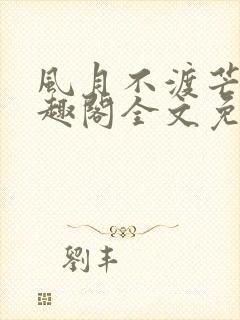 風月不渡芒
趣閣全文免
劉丰